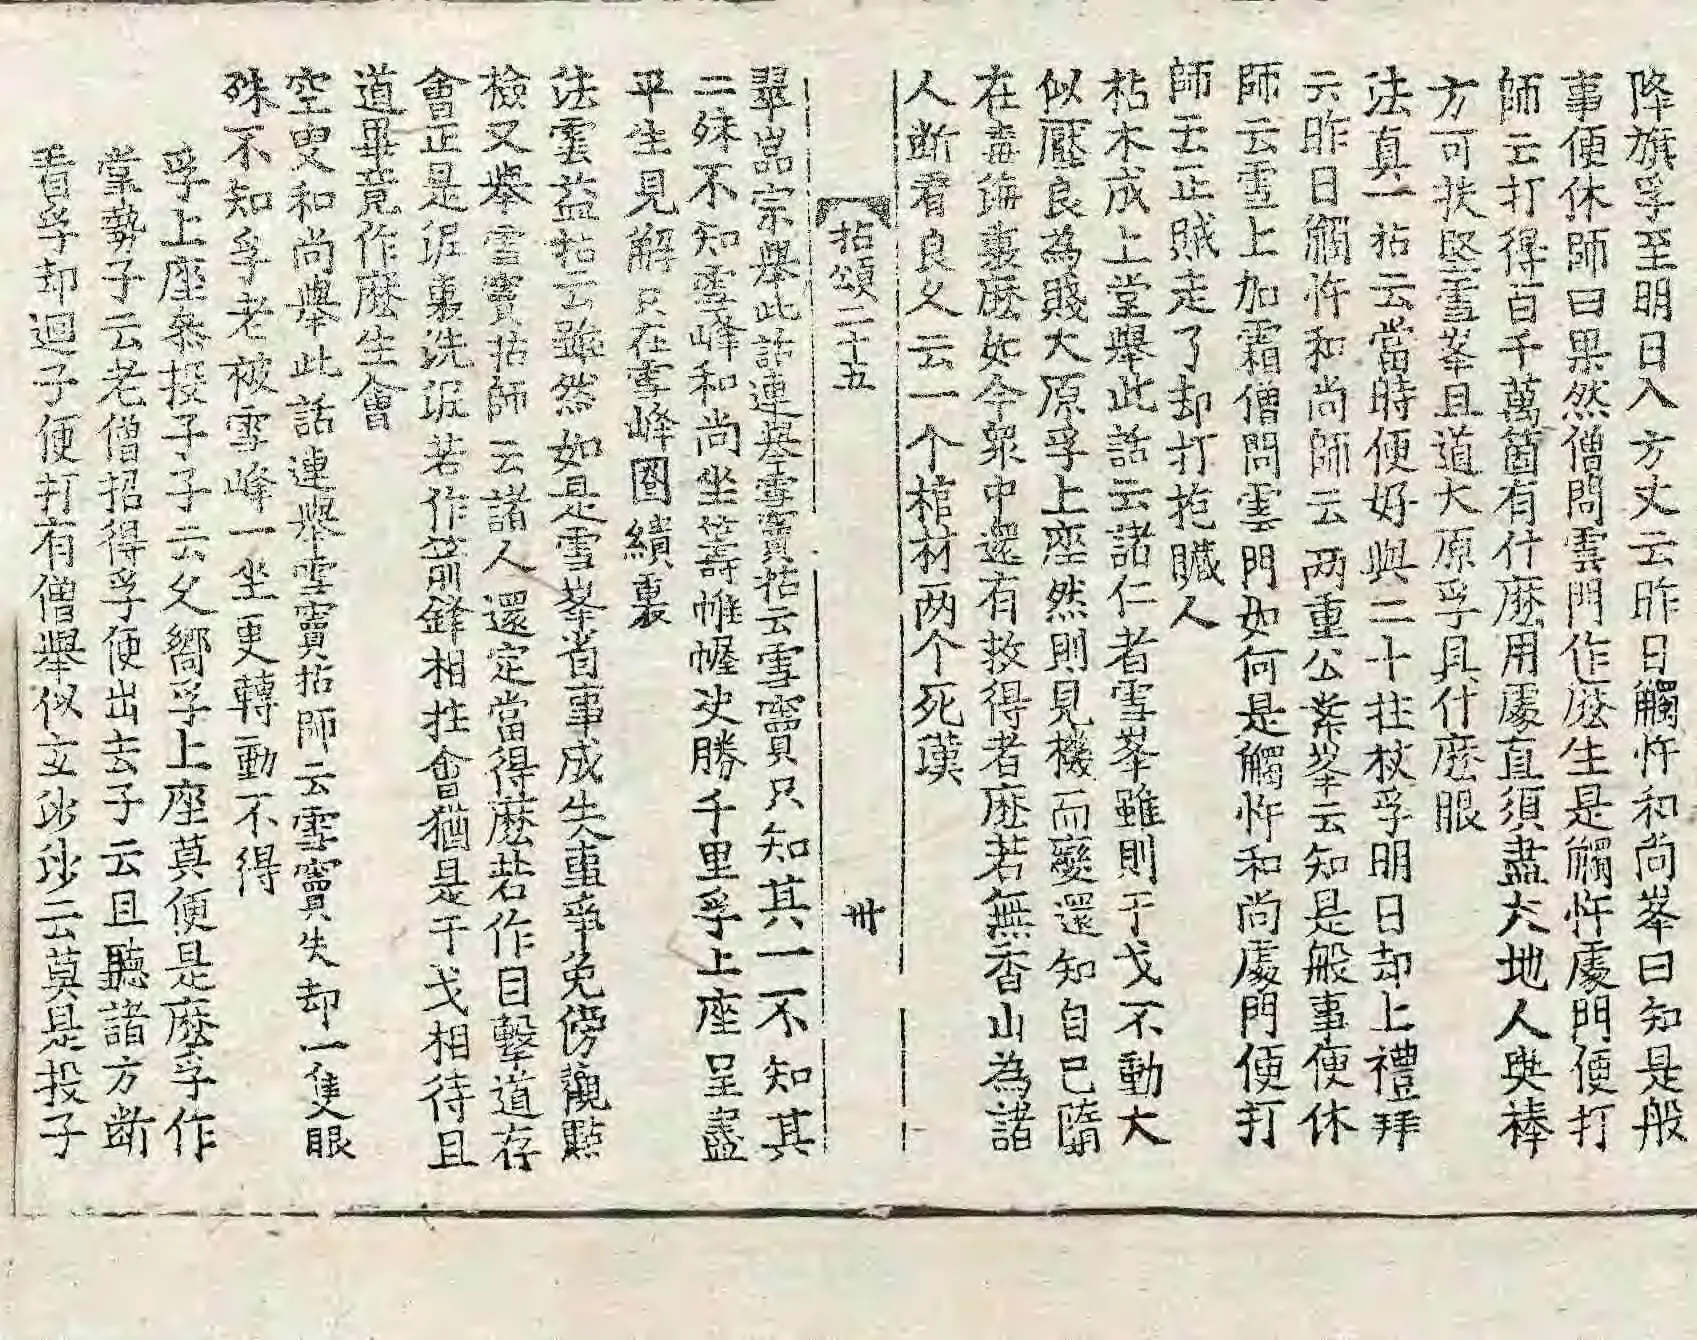 降旗孚至明日入方丈云昨日觸忤和尚峯曰知是般
事便休師曰果然僧問雲門作麽生是觸忤處門便打
師云打得百千萬箇有什麽用處直須盡大地人與棒
方可扶竪雪峯且道大原孚具什麽眼
法眞一拈云當時便好與二十拄杖孚明日却上禮拜
云昨日觸忤和尚師云两重公案峯云知是般事便休
師云雪上加霜僧問雲門如何是觸忤和尚處門便打
師云正賊走了却打抱贓人
枯木成上堂擧此話云諸仁者雪峯雖則干戈不動大
似壓良為賤大原孚上座然則見機而變還知自已墮
在毒海裏麽如今衆中還有救得者麽若無香山為諸
人断看良久云一个棺材两个死漢
拈頌二十五
卅
翠嵓宗擧此話連擧雪竇拈云雪竇只知其一不知其
二殊不知雪峰和尚坐籌帷幄决勝千里孚上座呈盡
平生見解只在雪峰圈繢裏
法雲益拈云雖然如是雪峯省事成失事爭免傍觀點
檢又擧雪竇拈師云諸人還定當得麽若作目擊道存
會正是泥裏洗泥若作箭鋒相拄會猶是干戈相待且
道畢竟作麽生會
空叟和尚擧此話連擧雪竇拈師云雪竇失却一隻眼
殊不知孚老被雪峰一坐更轉動不得
孚上座叅投子子云久嚮孚上座莫便是麽孚作
掌勢子云老僧招得孚便出去子云且聽諸方断
看孚却迴子便打有僧擧似玄沙沙云莫是投子